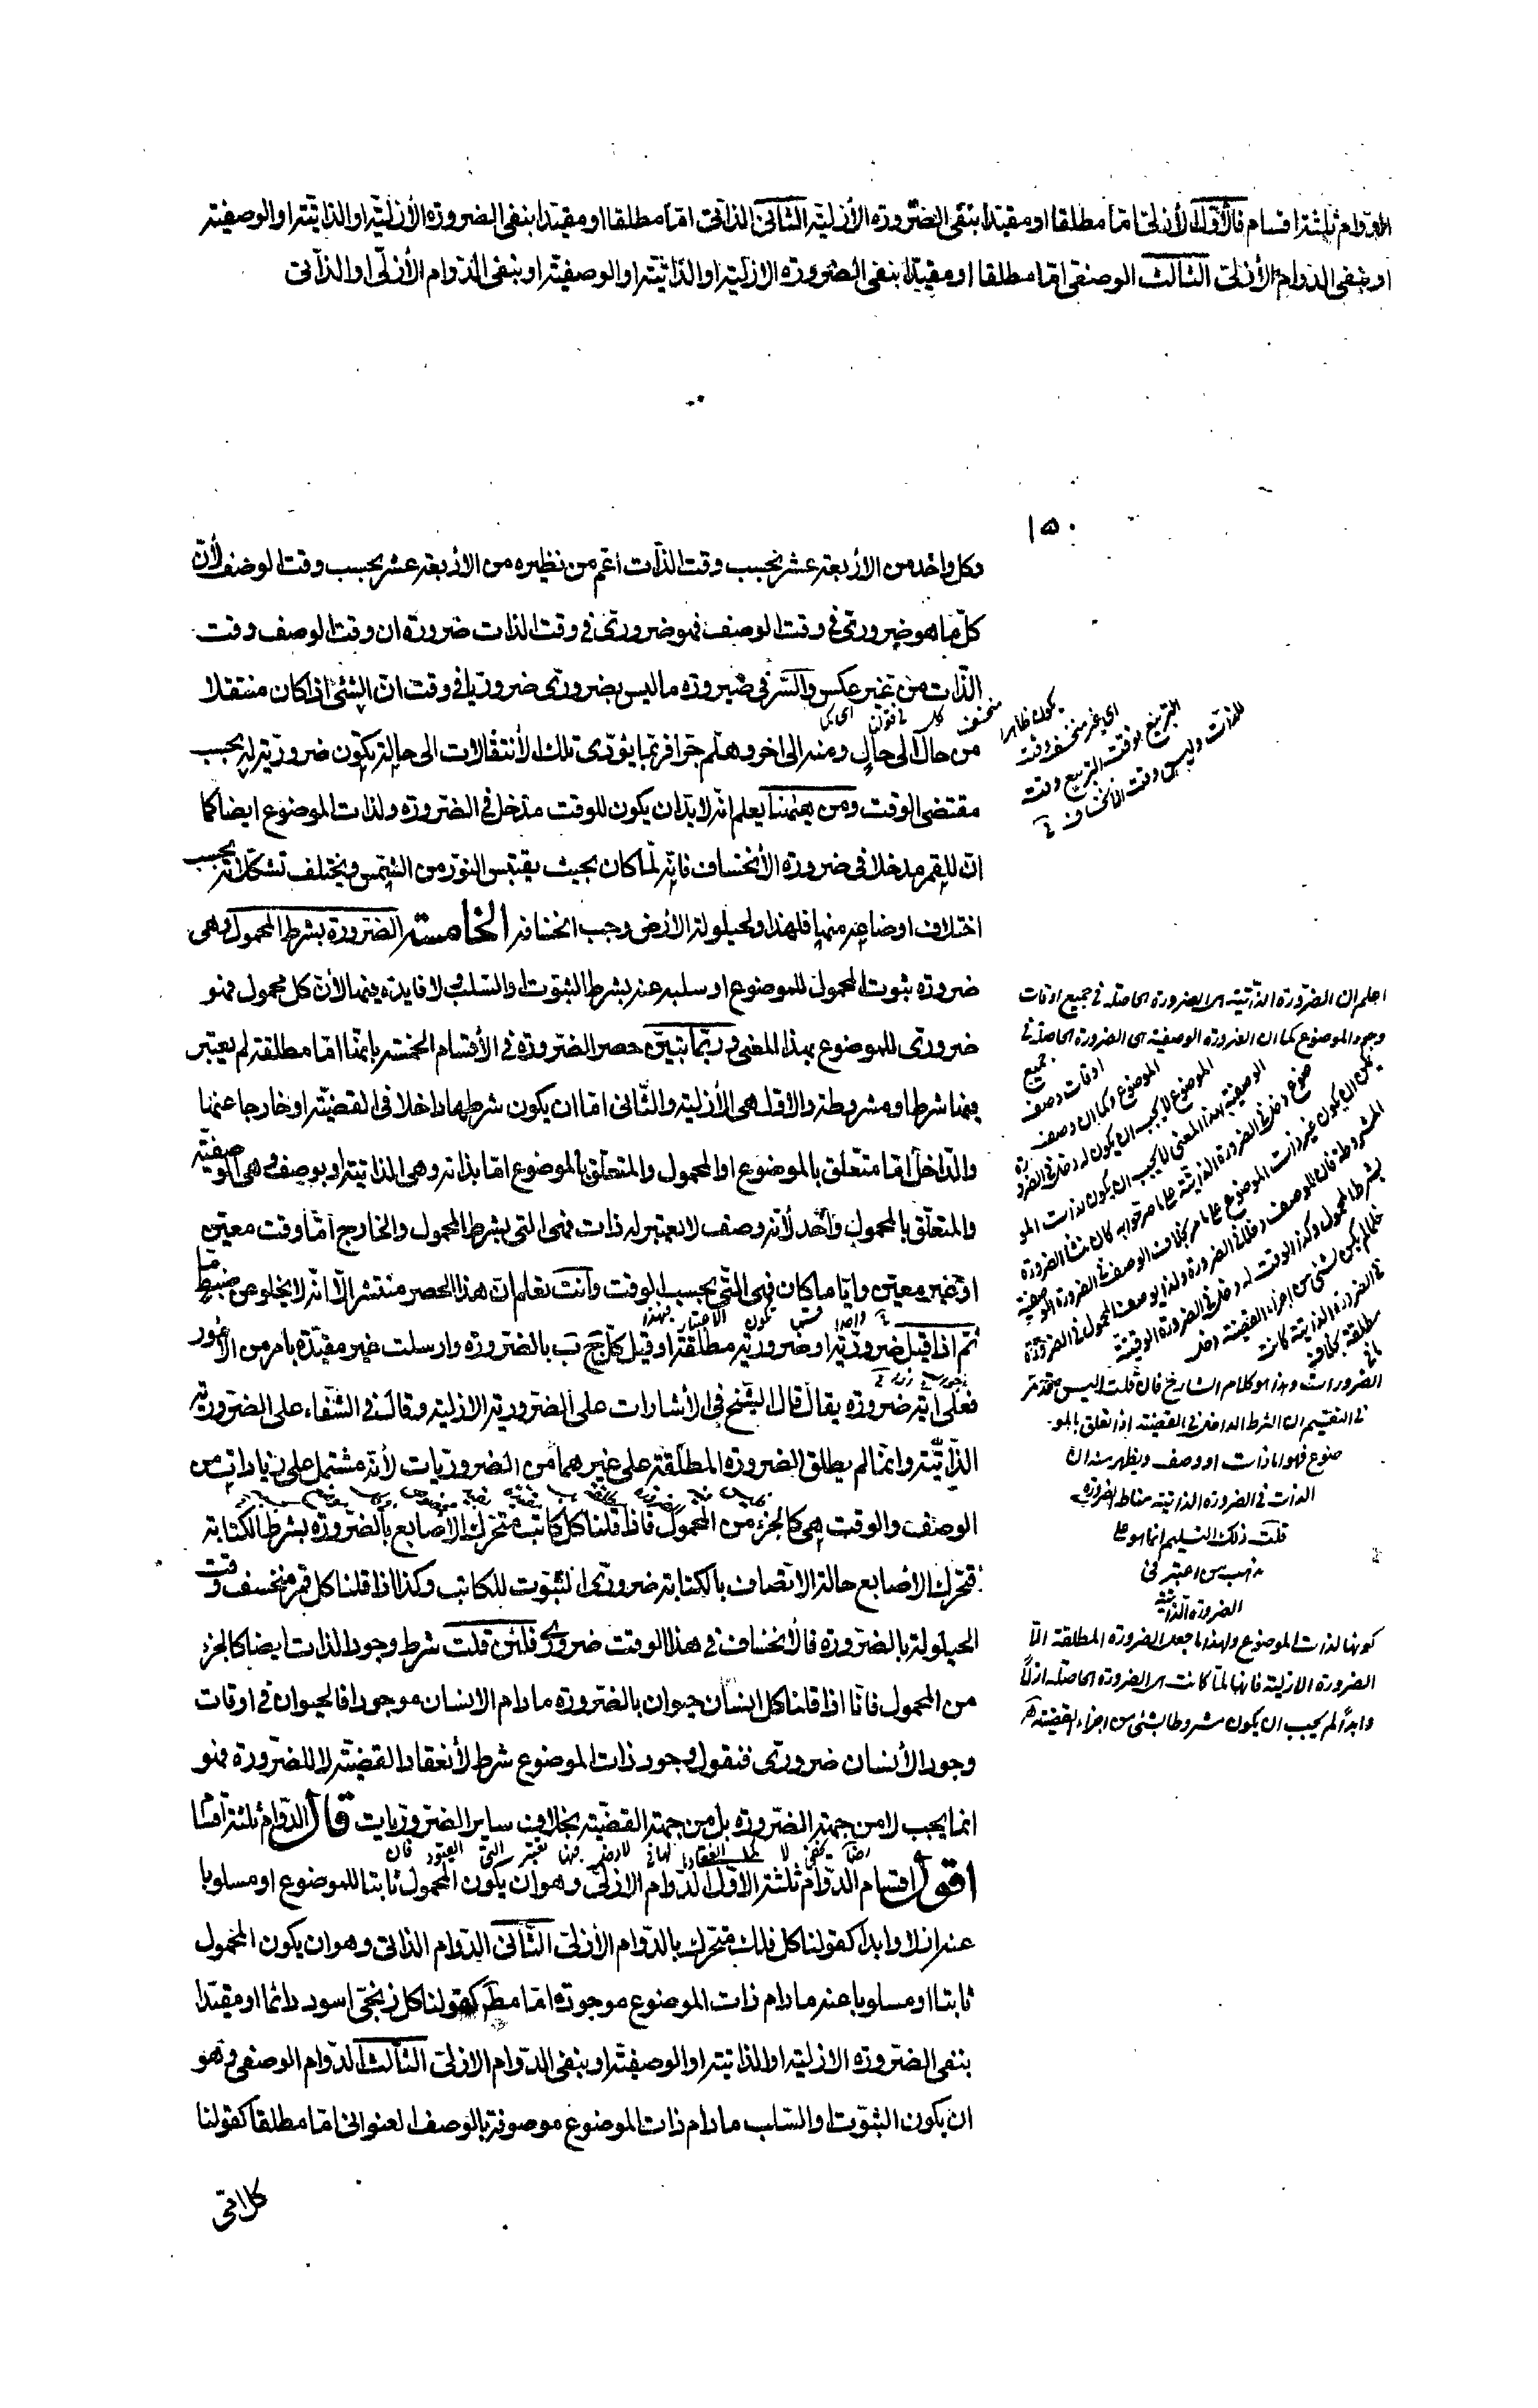 الدوام ثلثة اقسام فالاول الأزلى امّا مطلقا او مقيّدا بنفى الضّرورة الأزليّة الثّانى الذاتى امّا مطلقا او مقيّدا بنفى الضرورة الأزليّة او الذاتيّة او الوصفيّة
او بنفى الدوام الأزلىّ الثالث الوصفى امّا مطلقا او مقيّدا بنفى الضرورة الازليّة او الذاتيّة او الوصفيّة او بنفى الدّوام الأزلىّ او الذّاتى
١٥٠
وكل واحد من الأربعة عشر بحسب وقت الذّات اعمّ من نظيره من الأربعة عشر بحسب وقت الوصف لأنّ
كلّ ما هو ضرورىّ فى وقت الوصف فهو ضرورىّ فى وقت الذات ضرورة ان وقت الوصف وقت
الذّات من غير عكس والسّر فى ضيرورة ما ليس بضرورى ضروريّا فى وقت انّ الشئ اذا كان منتقلا
من حال الى حال ومنه الى اخر وهلّم جرّا فربّما يؤدّى تلك الأنتقالات الى حالة يكون ضروريّة له بحسب
مقتضى الوقت ومن ههنا يعلم انّه لا بدّ ان يكون للوقت مدخل فى الضّرورة ولذات الموضوع ايضا كما
انّ للقمر مدخلا فى ضرورة الأنخساف فانّه لمّا كان بحيث يقتبس النور من الشّمس ويختلف تشكّلاته بحسب
اختلاف اوضاعه منها فلهذا ولحيلولة الأرض وجب انخسافه الخامسة الضّرورة بشرط المحمول وهى
ضرورة ثبوت المحمول للموضوع او سلبه عنه بشرط الثبوت او السّلب ولا فايدة فيها لأنّ كل محمول فهو
ضرورى للموضوع بهذا المعنى وربّما تبيّن حصر الضّرورة فى الأقسام الخمسة بانّها امّا مطلقة لم يعتبر
فيها شرط او مشروطة والاوّل هى الأزلية والثّانى امّا ان يكون شرطها داخلا فى القضيّة او خارجا عنها
والدّاخل امّا متعلّق بالموضوع او المحمول والمتعلّق بالموضوع امّا بذاته وهى الذاتيّة او بوصفه وهى الوصفيّة
والمتعلّق بالمحمول واحد لأنّه وصف لا يعتبر له ذات فهى التى بشرط المحمول والخارج امّا وقت معيّن
او غير معيّن وايّا ما كان فهى التّى بحسب الوقت وانت تعلم انّ هذا الحصر منتشر الّا انّه لا يخلو من ضبط ما
ثمّ اذا قيل ضروريّة او ضروريّة مطلقة او قيل كلّ ج ب بالضّرورة وارسلت غير مقيّدة بامر من الأمور
فعلى ايّة ضرورة يقال قال الشّيخ فى الأشارات على الضّروريّة الازليّة وقال فى الشّفاء على الضّروريّة
الذّاتيّة وانّما لم يطلق الضرورة المطلقة على غيرهما من الضروريّات لأنّه مشتمل على زيادات من
الوصف والوقت هى كالجزء من المحمول فاذا قلنا كل كاتب متحرّك الأصابع بالضّرورة بشرط الكتابة
فتحرّك الأصابع حالة الاتّصاف بالكتابة ضرورىّ الثبوت للكاتب وكذا اذا قلنا كل قمر منخسف وقت
الحيلولة بالضّرورة فالأنخساف فى هذا الوقت ضرورىّ فلئن قلت شرط وجود الذات ايضا كالجزء
من المحمول فانّا اذا قلنا كل انسان حيوان بالضّرورة ما دام الانسان موجودا فالحيوان فى اوقات
وجود الأنسان ضرورى فنقول وجود ذات الموضوع شرط لأنعقاد القضيّة لا للضّرورة فهو
انما يجب لا من جهة الضّرورة بل من جهة القضيّة بخلاف ساير الضّروريّات قال الدّوام ثلثة اقسام
اقول اقسام الدّوام ثلثة الاوّل الدّوام الازلىّ وهو ان يكون المحمول ثابتا للموضوع او مسلوبا
عنه ازلا وابدا كقولنا كل فلك متحرّك بالدّوام الأزلىّ الثّانى الدّوام الذاتى وهو ان يكون المحمول
ثابتا او مسلوبا عنه ما دام ذات الموضوع موجودة امّا مطلقا كقولنا كل زنجىّ اسود دائما او مقيّدا
بنفى الضّرورة الازليّة او الذاتيّة او الوصفيّة او بنفى الدّوام الازلىّ الثّالث الدّوام الوصفى وهو
ان يكون الثبوت او السّلب ما دام ذات الموضوع موصوفة بالوصف العنوانى امّا مطلقا كقولنا
كل امّى
اى غير منخسف وقت
التربيع بوقت التربيع وقت
للذات وليس وقت الانخساف
اعلم ان الضّرورة الذّاتية هى الضرورة الحاصلة فى جميع اوقات
وجود الموضوع كما ان الضرورة الوصفية هى الضرورة الحاصلة فى
جميع
اوقات وصف
الموضوع وكما ان وصف
الموضوع لا يجب ان يكون له دخل فى الضرورة
الوصفية بهذا المعنى لا يجب ان يكون لذات الموضوع
دخل فى الضرورة الذاتية
الضرورات وهذا هو كلام الشارح فان قلت اليس متقدم
فى التقسيم ان الشرط الداخل فى القضيّة اذا تعلق بالمو
ضوع فهو اما ذات او وصف ويظهر منه ان
الذات فى الضرورة الذاتية مناط الضرورة
قلت ذلك التسليم انما هو على
مذهب من اعتبر فى
الضرورة الذاتية
كونها لذات الموضوع ولهذا ما جعل الضرورة المطلقة الّا
الضرورة الازلية فانها لمّا كانت هى الضرورة الحاصلة ازلاً
وابداً لم يجب ان يكون مشروطا بشئ من اجزاء القضيّة